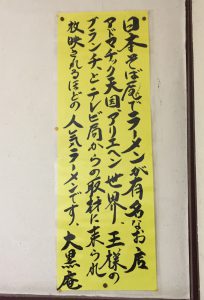 日本そば屋でラーメンが有名なお店
アド マチック天国、アリエヘン世界、王様の
ブランチ、とテレビ局からの取材に来られ
放映されるほどの人気ラーメンです、大黒庵